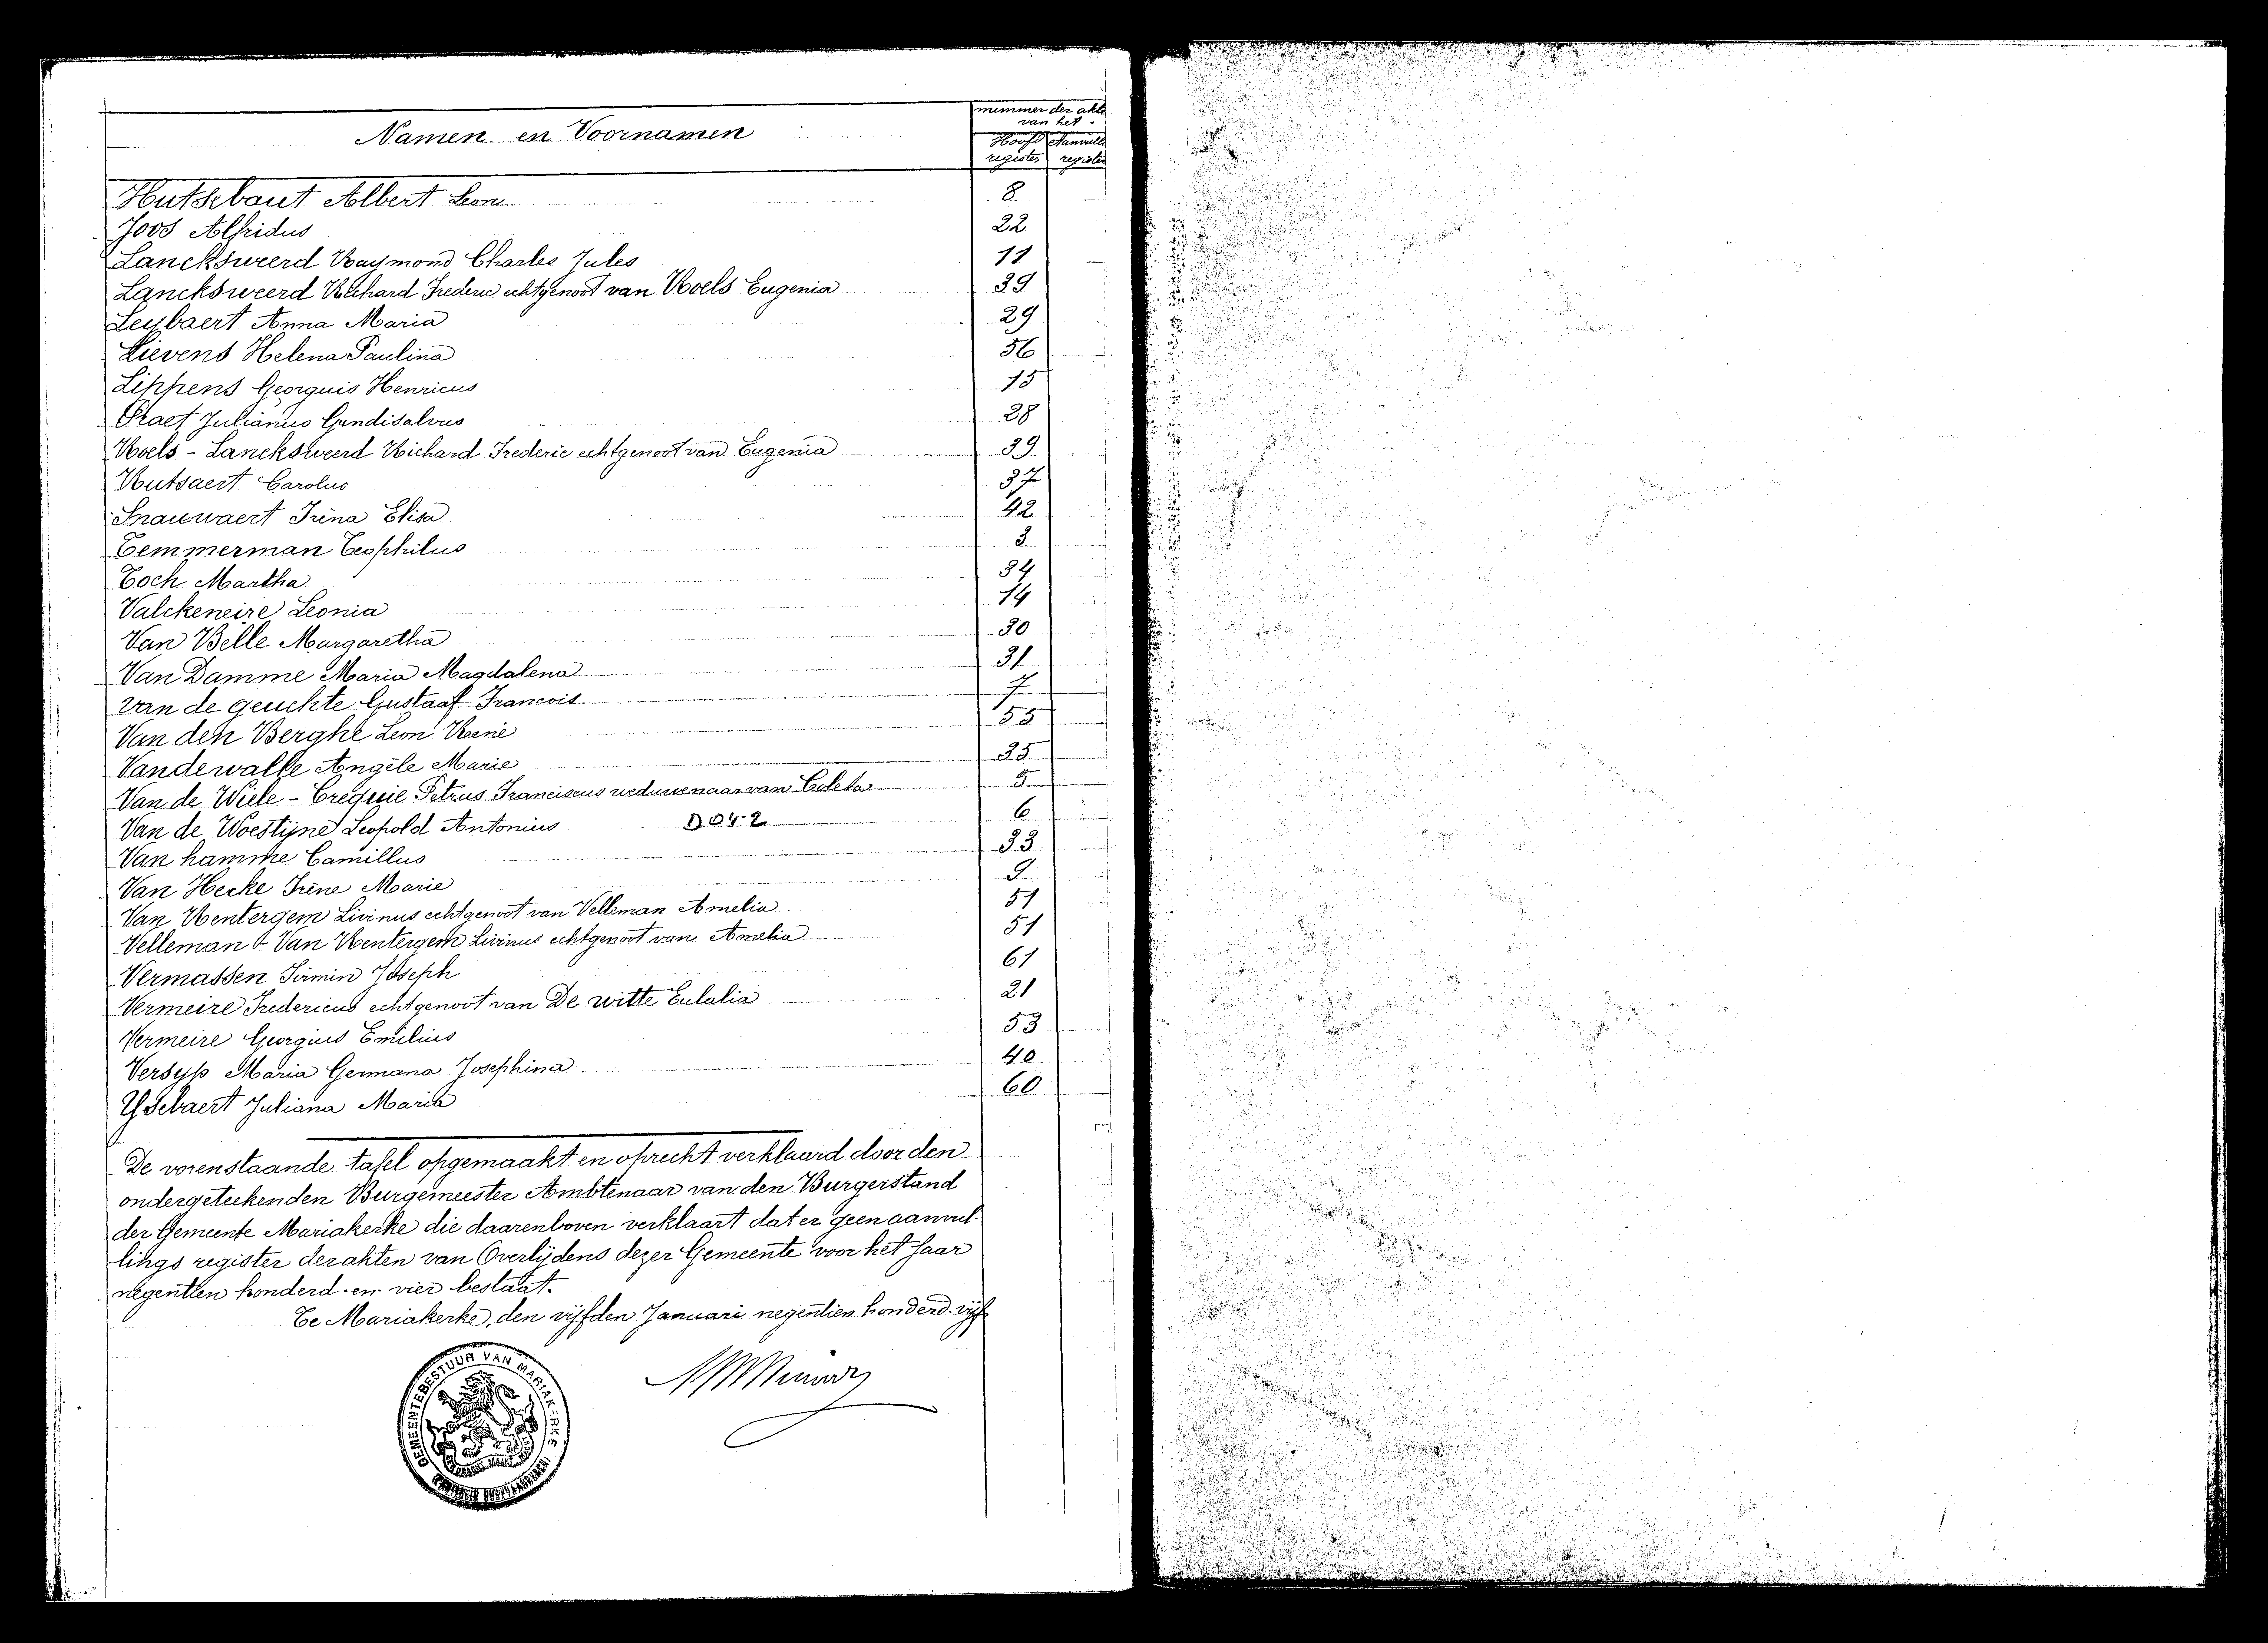 nummer der akte
van het
Namen en Voornamen
Hoofd Aanvull
register register
Hutsebaut Albert Leon 8
Joos Alfridus 22
Lancksweerd Raymond Charles Jules 11
Lancksweerd Richard Frederic echtgenoot van Roels Eugenia 39
Leybaert Anna Maria 29
Lievens Helena Paulina 56
Lippens Georguis Henricus 15
Praet Julianus Gundisalvus 28
Roels - Lancksweerd Richard Frederic echtgenoot van Eugenia 39
Rutsaert Carolus 37
Snauwaert Irina Elisa 42
Temmerman Teophilus 3
Toch Martha 34
Valckeneire Leonia 14
Van Belle Margaretha 30
Van Damme Maria Magdalena 31
van de geuchte Gustaaf Francois 7
Van den Berghe Leon René 55
Vandewalle Angèle Marie 35
Van de Wiele - Crequie Petrus Franciscus weduwenaar van Coleta 5
Van de Woestijne Leopold Antonius D 04-2 6
Van hamme Camillus 33
Van Hecke Irène Marie 9
Van Rentergem Livinus echtgenoot van Velleman Amelia 51
Velleman & Van Rentergem Livinus echtgenoot van Amelia 51
Vermassen Firmin Joseph 61
Vermeire Fredericus echtgenoot van De witte Eulalia 21
Vermeire Georgius Emilius 53
Versyp Maria Germana Josephina 40
Ysebaert Juliana Maria 60
De vorenstaande tafel opgemaakt en oprecht verklaard door den
ondergeteekenden Burgemeester Ambtenaar van den Burgerstand
der Gemeente Mariakerke die daarenboven verklaart dat er geen aanvul-
lings register der akten van Overlijdens dezer Gemeente voor het jaar
negentien honderd en vier bestaat.
Te Mariakerke, den vijfden Januari negentien honderd vijf
GEMEENTEBESTUUR VAN MARIAKERKE